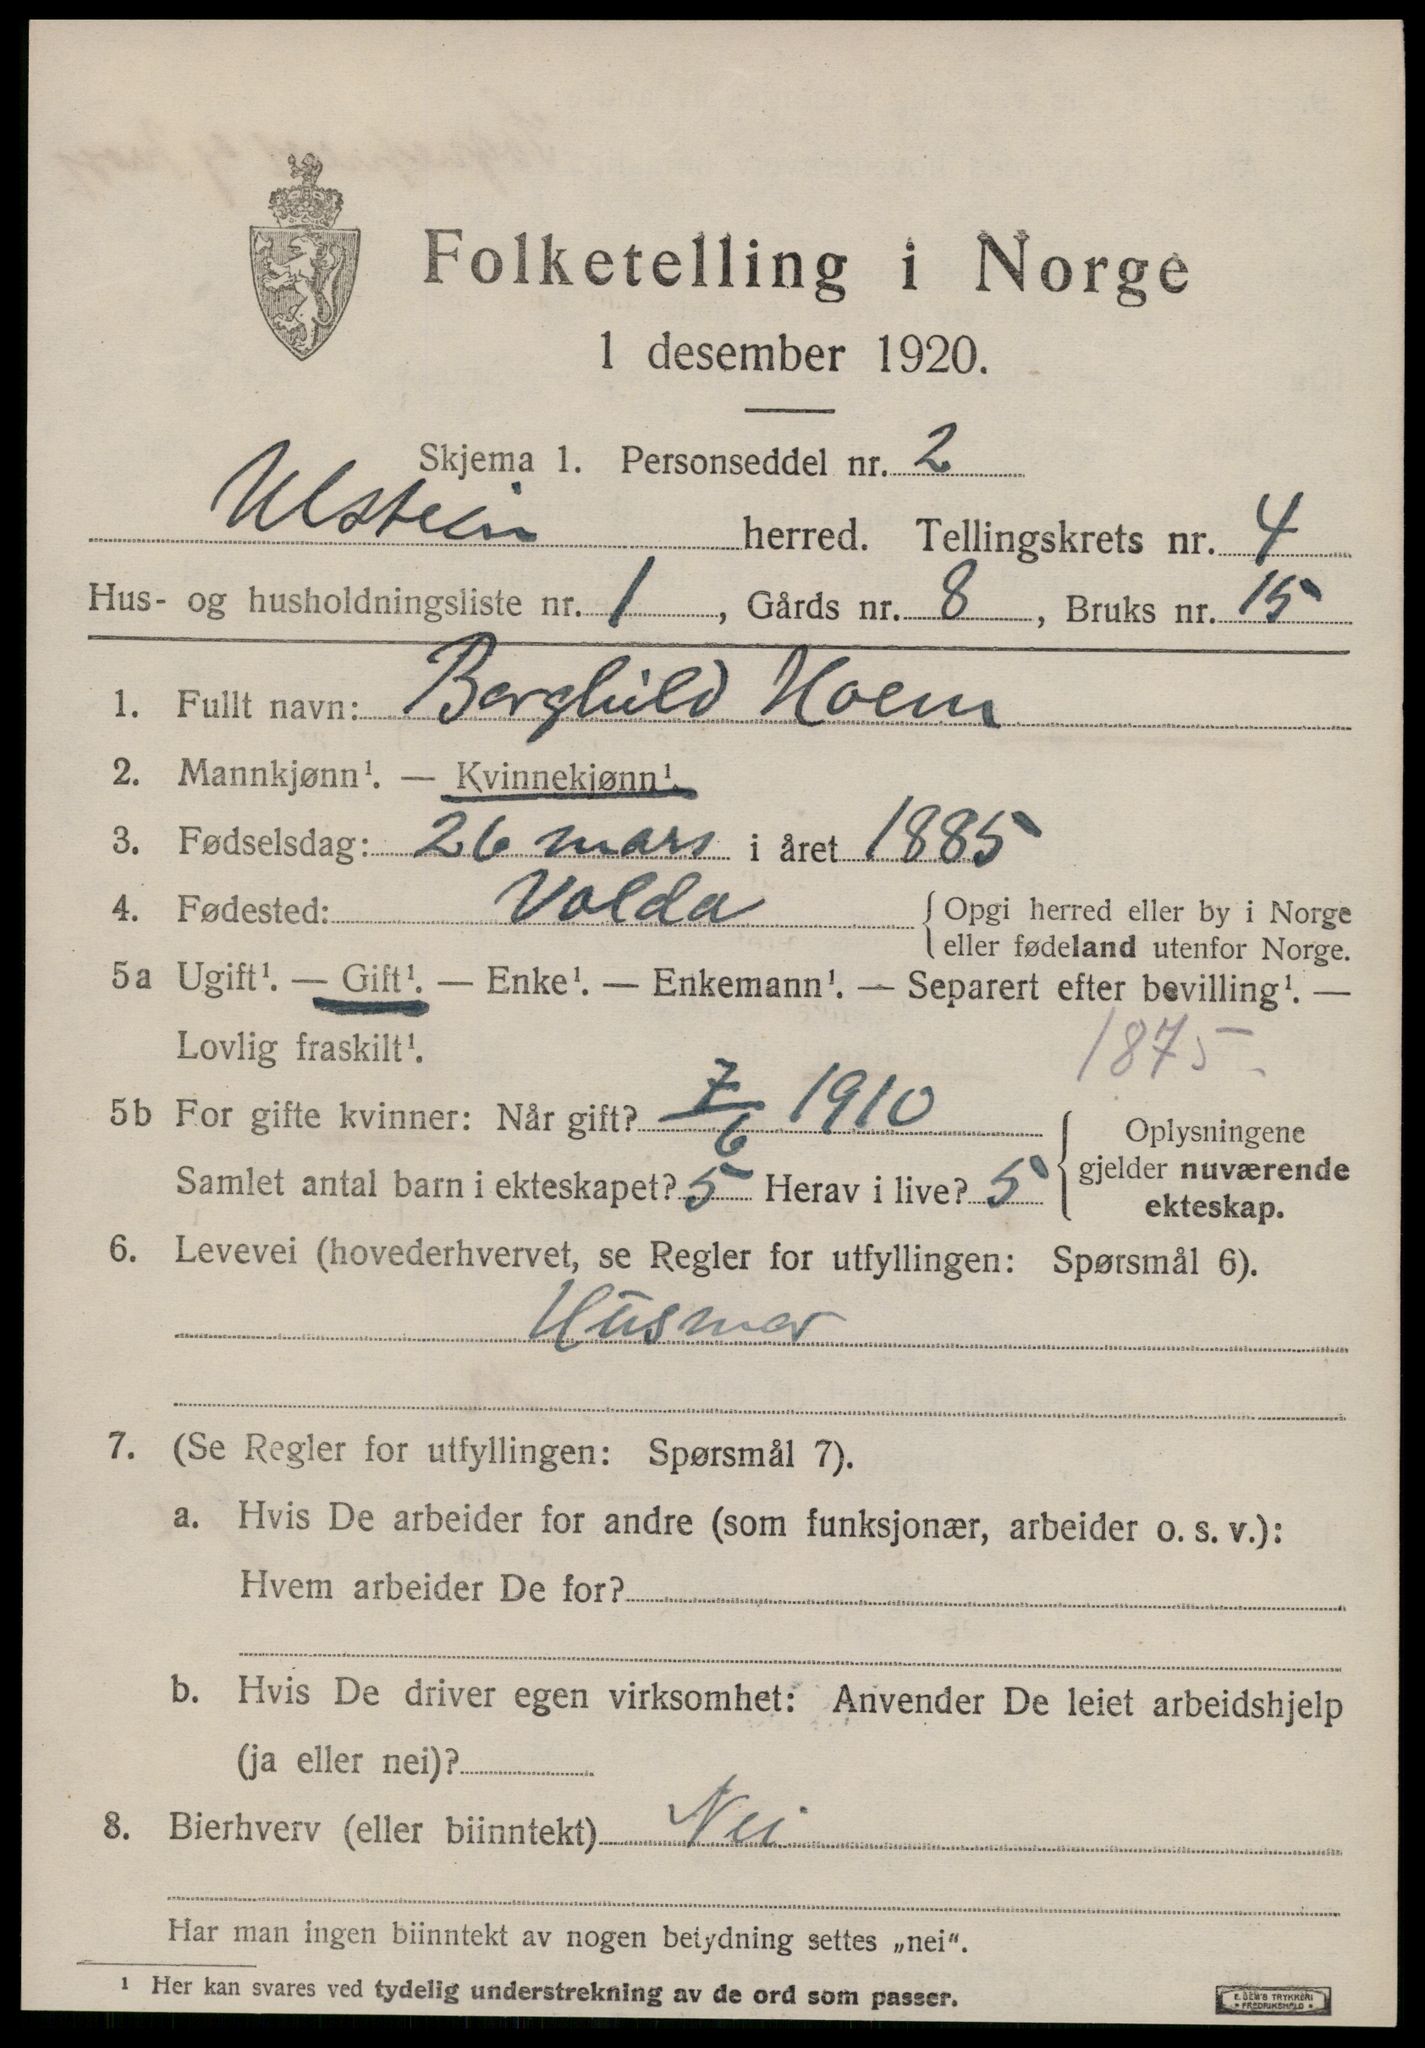 Folketelling i Norge
1 desember 1920.
Skjema 1. Personseddel nr. 2
Ulstein herred. Tellingskrets nr. 4
Hus- og husholdningsliste nr. 1, Gårds nr. 8, Bruks nr. 15
1. Fullt navn: Borghild Hoem
2. Mannkjønn¹. — Kvinnekjønn¹.
3. Fødselsdag: 26 mars i året 1885
4. Fødested: Volda { Opgi herred eller by i Norge
eller fødeland utenfor Norge.
5a Ugift¹. — Gift¹. — Enke¹. — Enkemann¹. — Separert efter bevilling¹. —
Lovlig fraskilt¹. 1875.
5b For gifte kvinner: Når gift? 7/6 1910
Samlet antal barn i ekteskapet? 5 Herav i live? 5
{ Oplysningene
gjelder nuværende
ekteskap.
6. Levevei (hovederhvervet, se Regler for utfyllingen: Spørsmål 6).
Husmor
7. (Se Regler for utfyllingen: Spørsmål 7).
a. Hvis De arbeider for andre (som funksjonær, arbeider o. s. v.):
Hvem arbeider De for?
b. Hvis De driver egen virksomhet: Anvender De leiet arbeidshjelp
(ja eller nei)?
8. Bierhverv (eller biinntekt) Nei
Har man ingen biinntekt av nogen betydning settes „nei“.
¹ Her kan svares ved tydelig understrekning av de ord som passer.
E. SEM'S TRYKKERI
• FREDRIKSHALD •